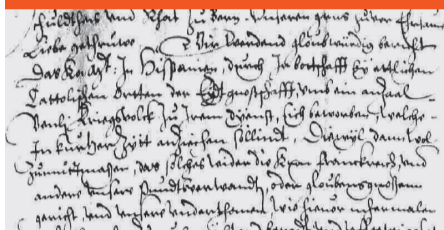 Schulthes vnd Rhat zu Bern. vnseren gruß zuvor Ehrsame
Liebe gethrüwe Wir werdend gloubwürdig bericht
das Königk. In Hispanien durch Ir bottschafft by ettlichen
Cattolischen Ortten der Eydtgnoschafft, vmb ein anzal
Kriegsvolck zu Irem dienst, sich beworben, welche
In kurtzer Zytt anziehen söllind, Diewyl dann wol
zunmuttmaßen, das solches wider die Kron Franckreich, vnd
andere vnsere Pundtsverwandte, oder gloubensgnossen
gericht, vnd vnsere vnderthanen, wie hievor mehrmalen